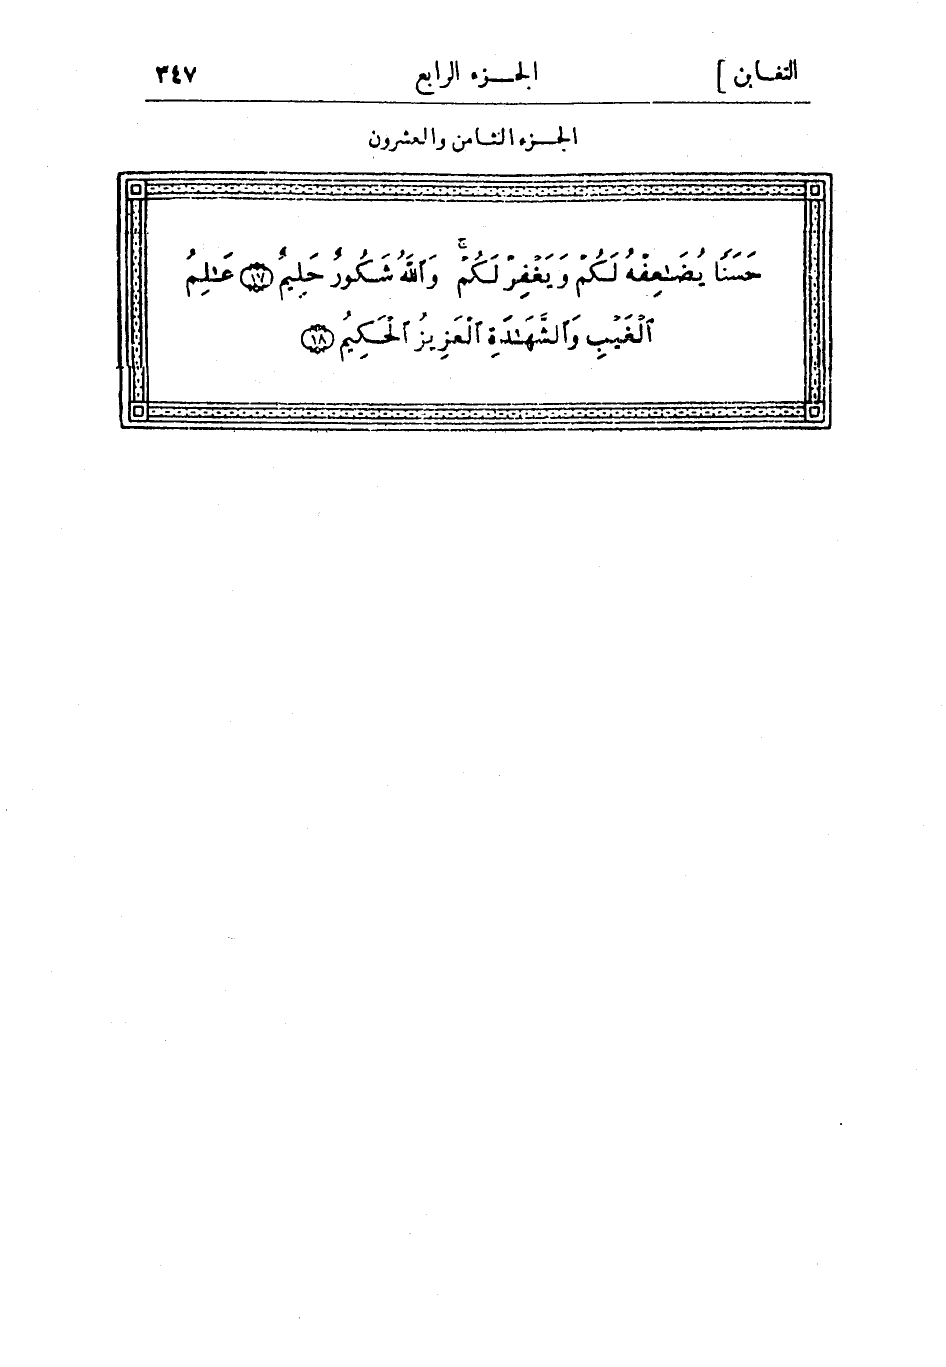 التغابن ] الجـــزء الرابع ٣٤٧
الجـــزء الثامن والعشرون
حَسَنًا يُضَٰعِفْهُ لَكُمْ وَيَغْفِرْ لَكُمْ ۚ وَٱللَّهُ شَكُورٌ حَلِيمٌ ١٧ عَٰلِمُ
ٱلْغَيْبِ وَٱلشَّهَٰدَةِ ٱلْعَزِيزُ ٱلْحَكِيمُ ١٨